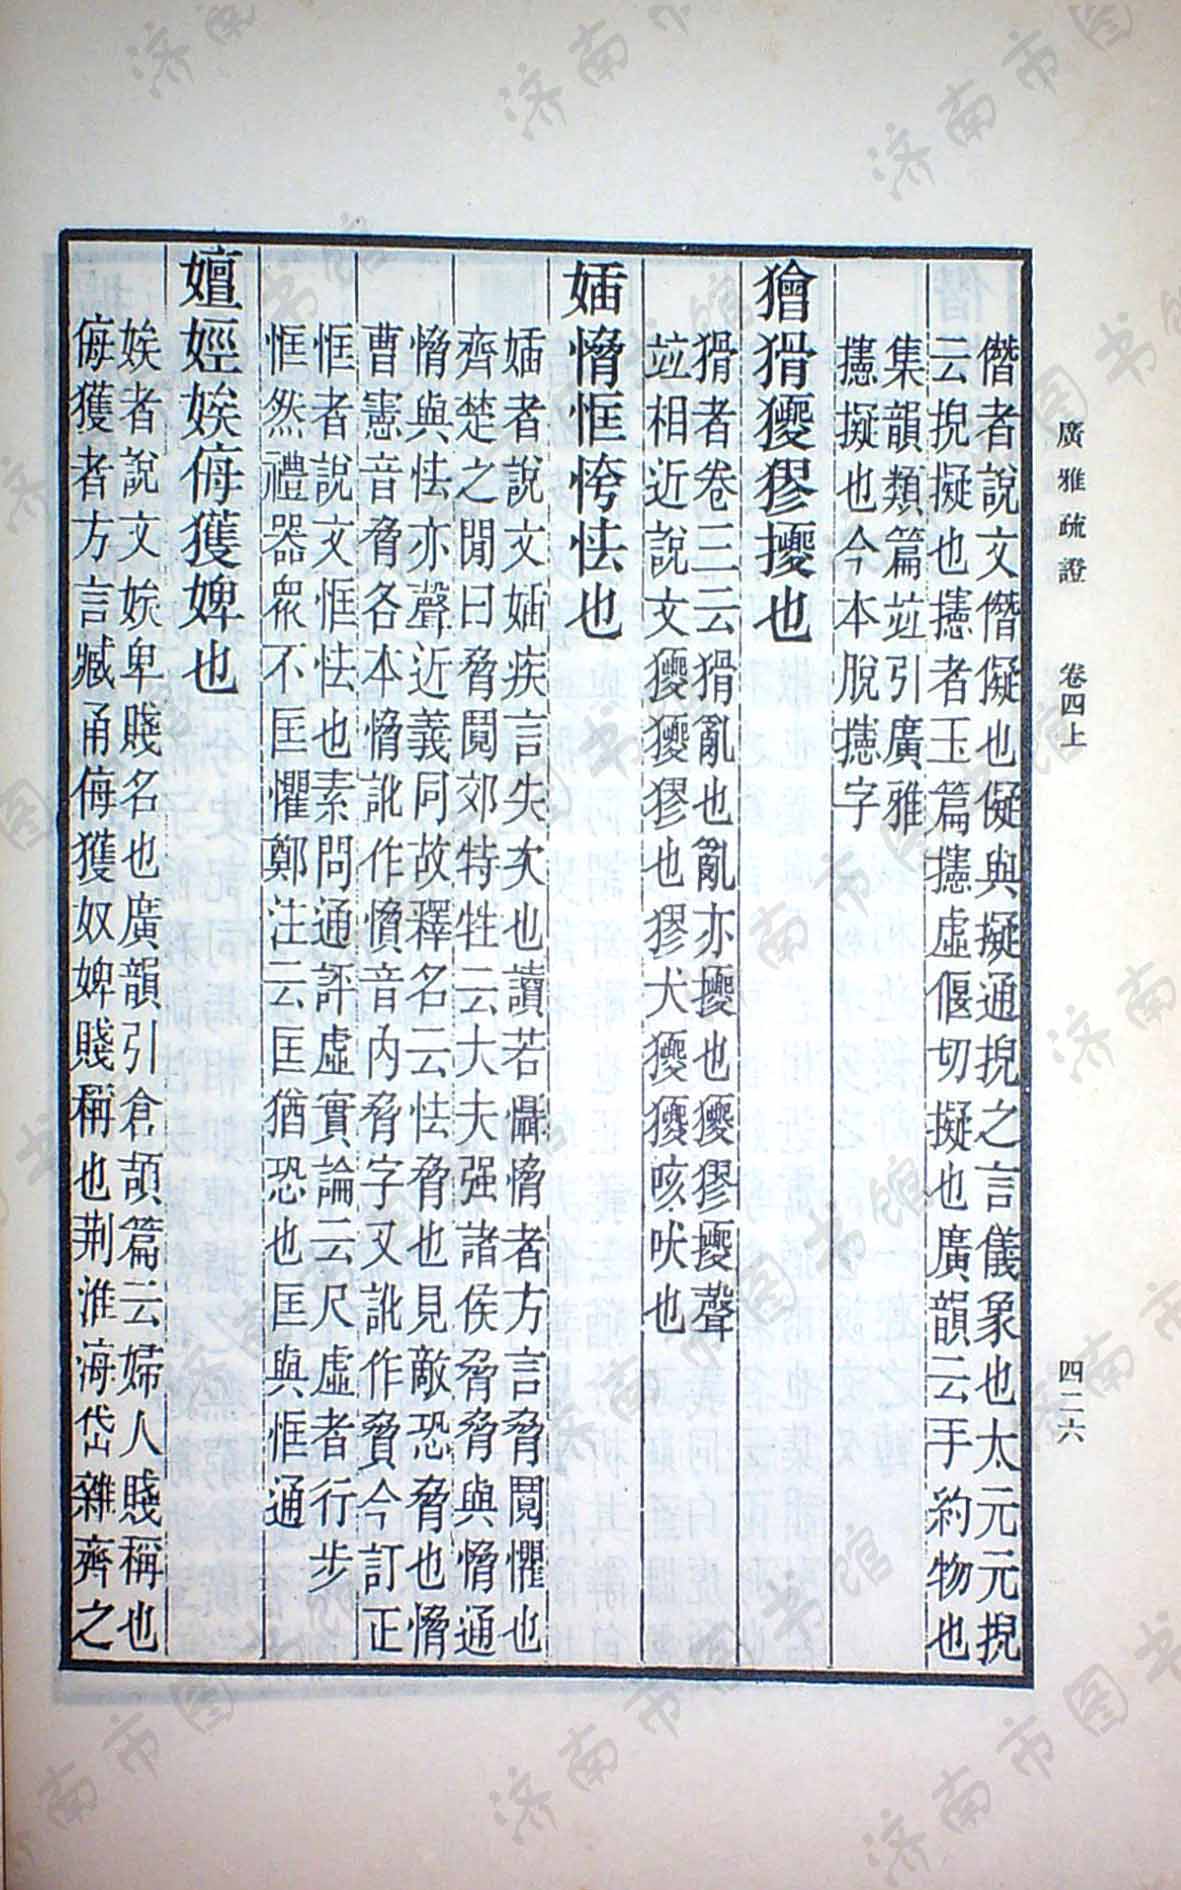 廣雅疏證　卷四上　四二六
僭者說文僭儗也儗與擬通掜之言儀象也太元元掜
云掜擬也攇者玉篇攇虛偃切擬也廣韻云手約物也
集韻類篇竝引廣雅
攇擬也今本脫攇字
獪猾獿獟擾也
猾者卷三云猾亂也亂亦擾也獿獟擾聲
竝相近說文獿獿㺒也㺒犬獿獿咳吠也
婳愶恇恗怯也
婳者說文婳疾言失次也讀若懾愶者方言脅鬩懼也
齊楚之閒曰脅鬩郊特牲云大夫强諸侯脅脅與愶通
愶與怯亦聲近義同故釋名云怯脅也見敵恐脅也愶
曹憲音脅各本愶訛作憤音內脅字又訛作賁今訂正
恇者說文恇怯也素問通評虛實論云尺虛者行步
恇然禮器眾不匡懼鄭注云匡猶恐也匡與恇通
嬗娙娭侮獲婢也
娭者說文娭卑賤名也廣韻引倉頡篇云婦人賤稱也
侮獲者方言臧甬侮獲奴婢賤稱也荆淮海岱雜齊之